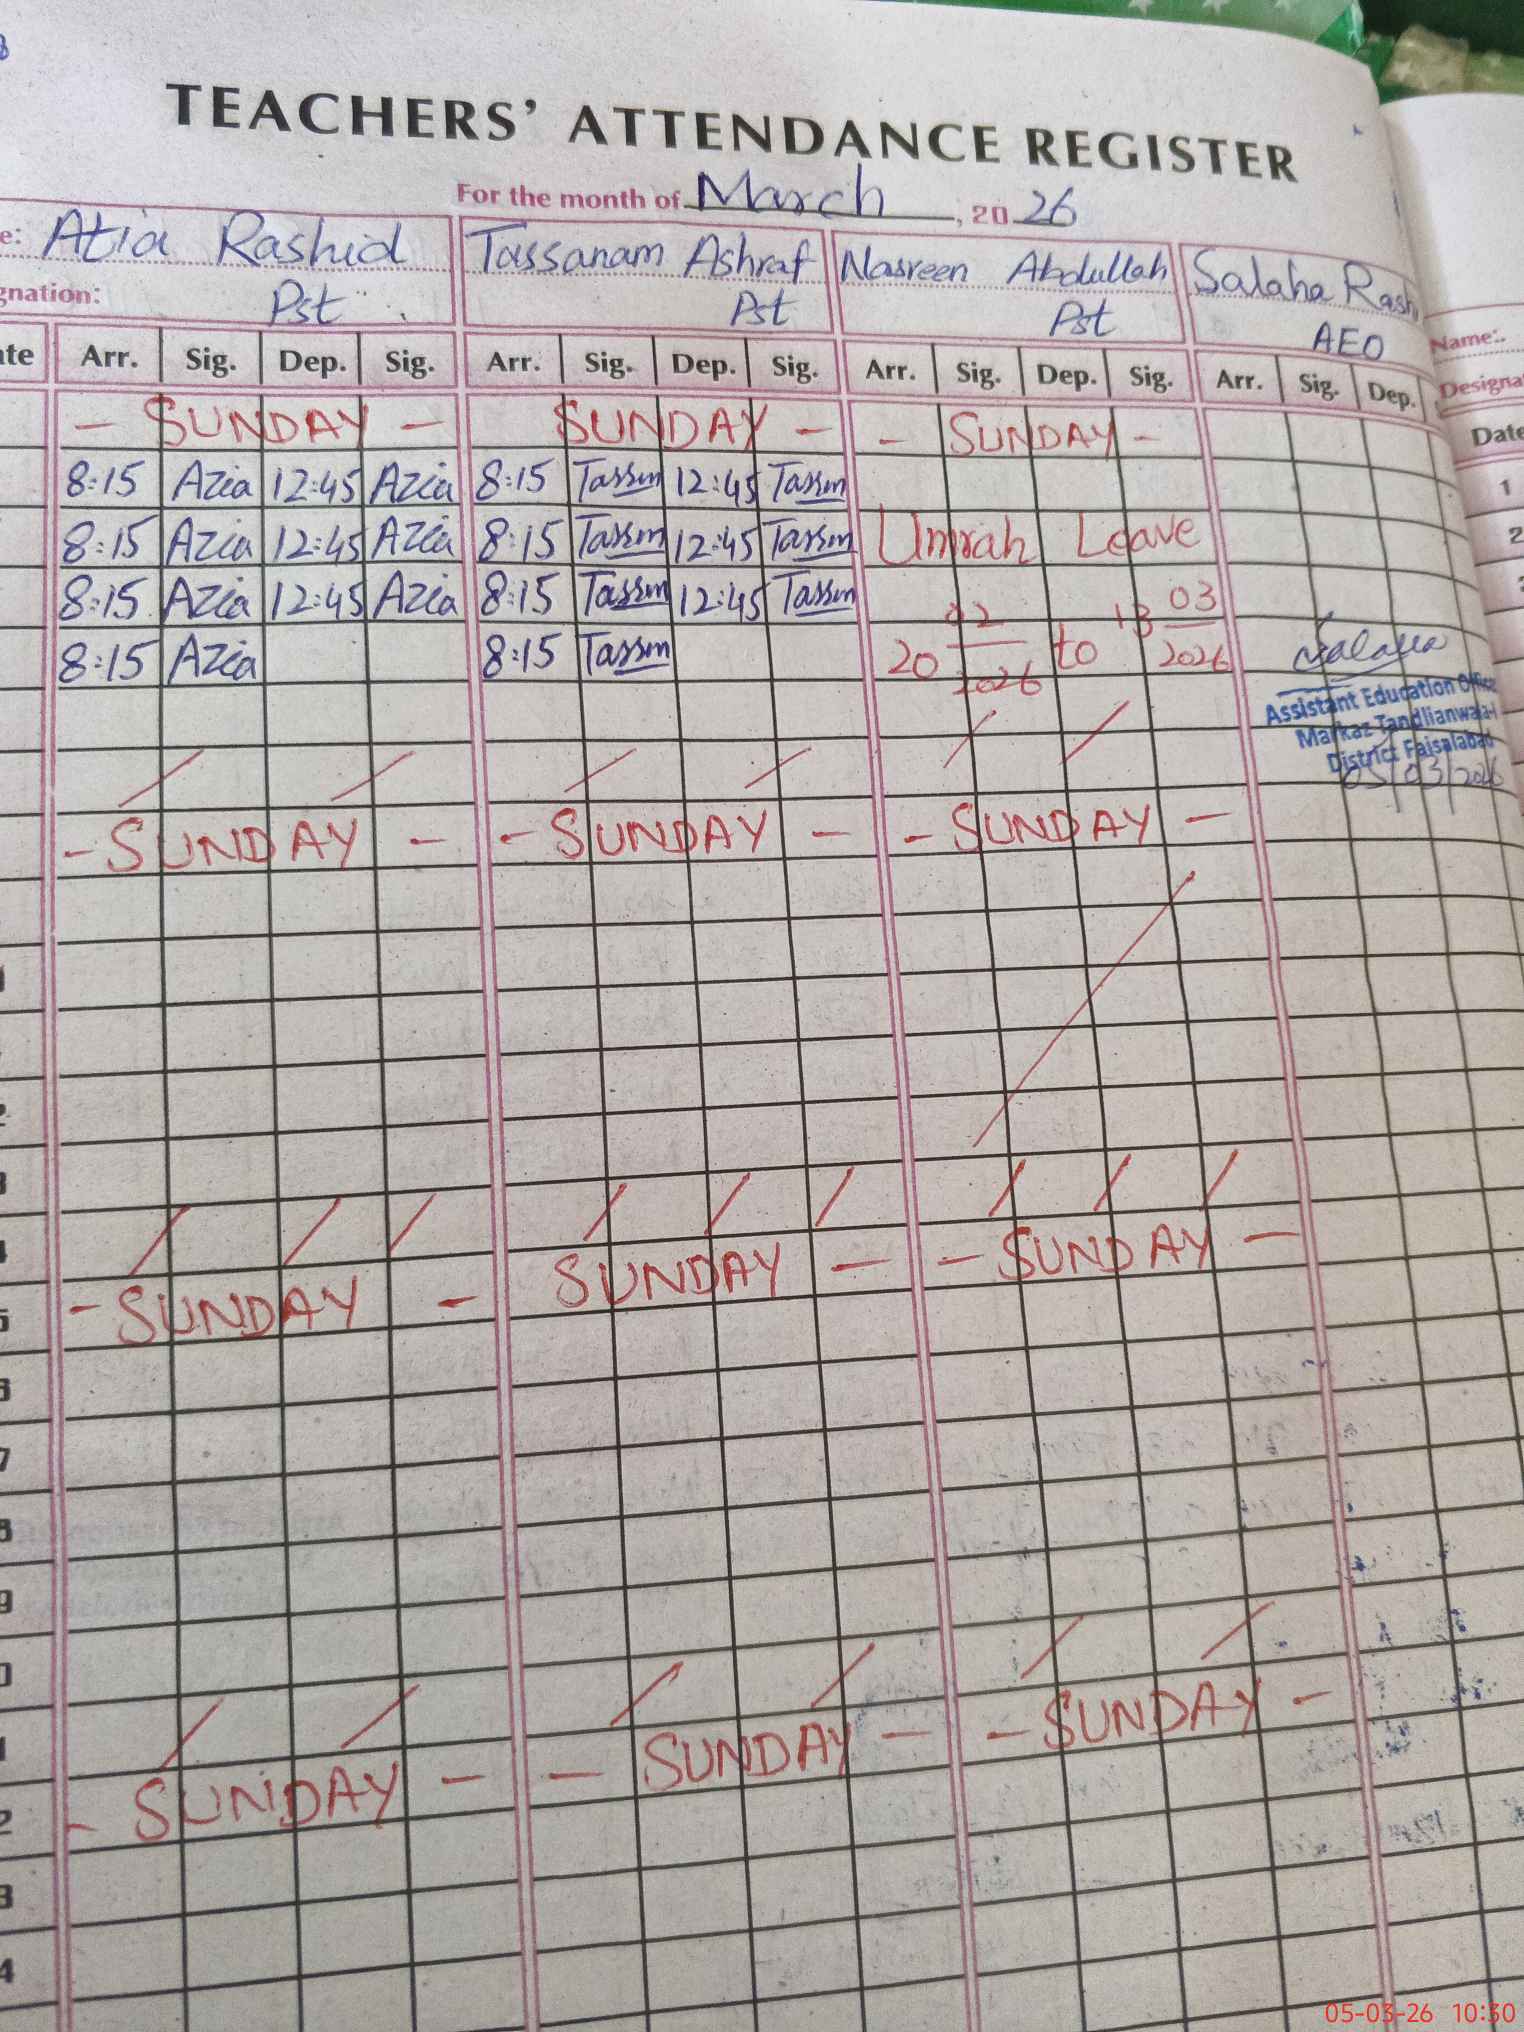 TEACHERS' ATTENDANCE REGISTER
For the month of March, 2026
e: Atia Rashid Tassanam Ashraf Nasreen Abdullah Salaha Rash
gnation: Pst Pst Pst AEO
Name:
Designa
ate Arr. Sig. Dep. Sig. Arr. Sig. Dep. Sig. Arr. Sig. Dep. Sig. Arr. Sig. Dep.
Date
- SUNDAY - SUNDAY - - SUNDAY -
8:15 Azia 12:45 Azia 8:15 Tassm 12:45 Tassm
1
8:15 Azia 12:45 Azia 8:15 Tassm 12:45 Tassm Umrah Leave
2
8:15 Azia 12:45 Azia 8:15 Tassm 12:45 Tassm
8:15 Azia 8:15 Tassm 20 02 2026 to 13 03 2026
Salaha
Assistant Education Office
Markaz Tandlianwala-I
District Faisalabad
05/03/2026
- SUNDAY - - SUNDAY - - SUNDAY -
- SUNDAY - SUNDAY - - SUNDAY -
5
6
7
8
9
0
1
- SUNDAY - - SUNDAY - - SUNDAY -
2
3
4
05-03-26 10:30